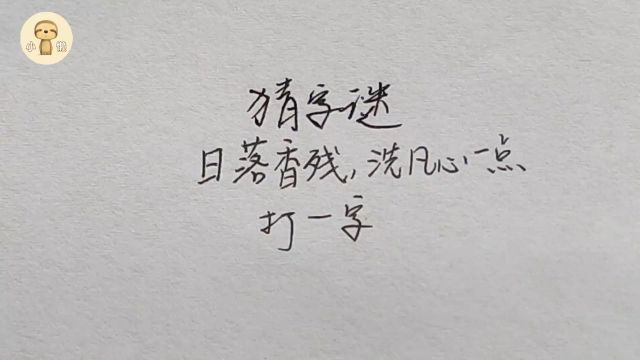 小懒
猜字谜
日落香残,洗凡心一点
打一字